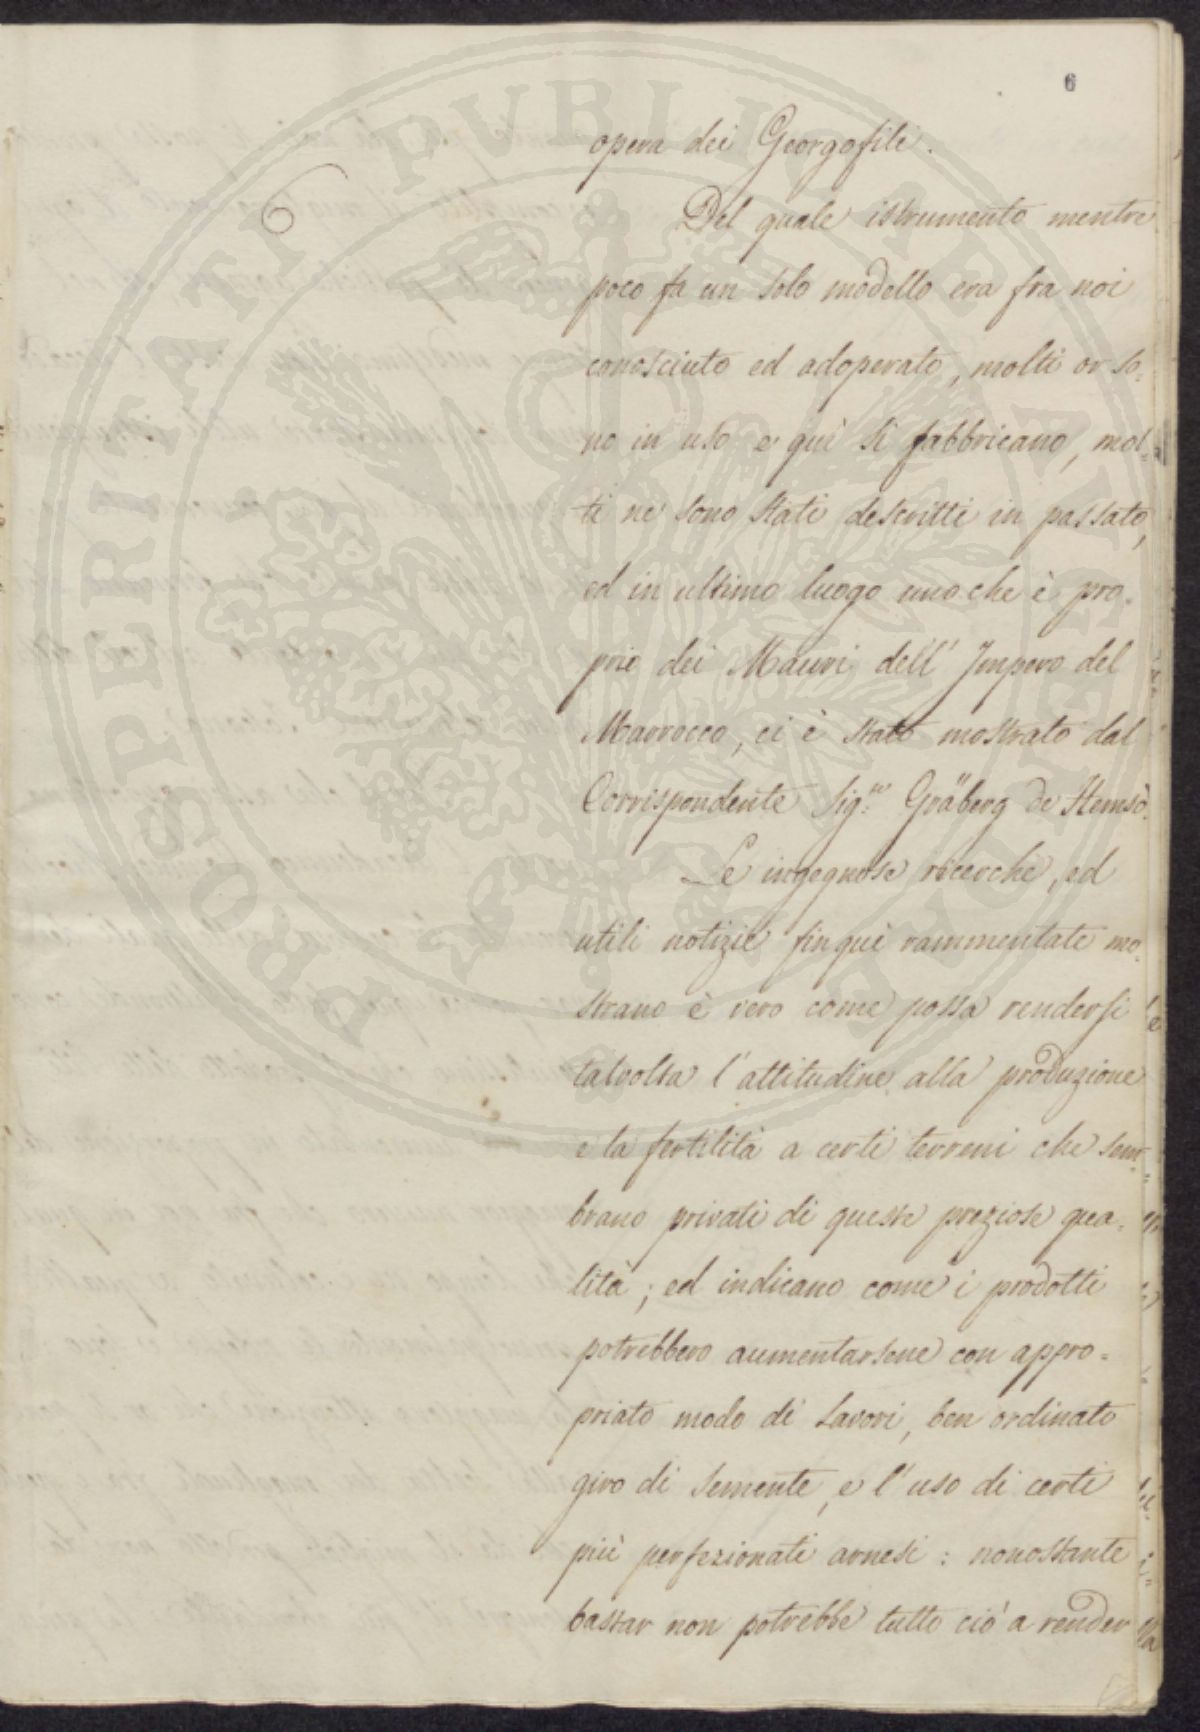 6
PROSPERITATI PUBLICAE AUGENDAE
6
opera dei Georgofili.
Del quale istrumento mentre
poco fa un solo modello era fra noi
conosciuto ed adoperato, molti or so-
no in uso e quì si fabbricano, mol-
ti ne sono stati descritti in passato,
ed in ultimo luogo uno che è pro-
prio dei Mauri dell' Impero del
Marrocco, ci è stato mostrato dal
Corrispondente Sig.re Gräberg de Hemsò.
Le ingegnose ricerche, ed
utili notizie fin quì rammentate mo-
strano è vero come possa rendersi
talvolta l'attitudine alla produzione
e la fertilità a certi terreni che sem-
brano privati di queste preziose qua-
lità; ed indicano come i prodotti
potrebbero aumentarsene con appro=
priato modo di lavori, ben ordinato
giro di semente, e l'uso di certi
più perfezionati arnesi: nonostante
bastar non potrebbe tutto ciò a render